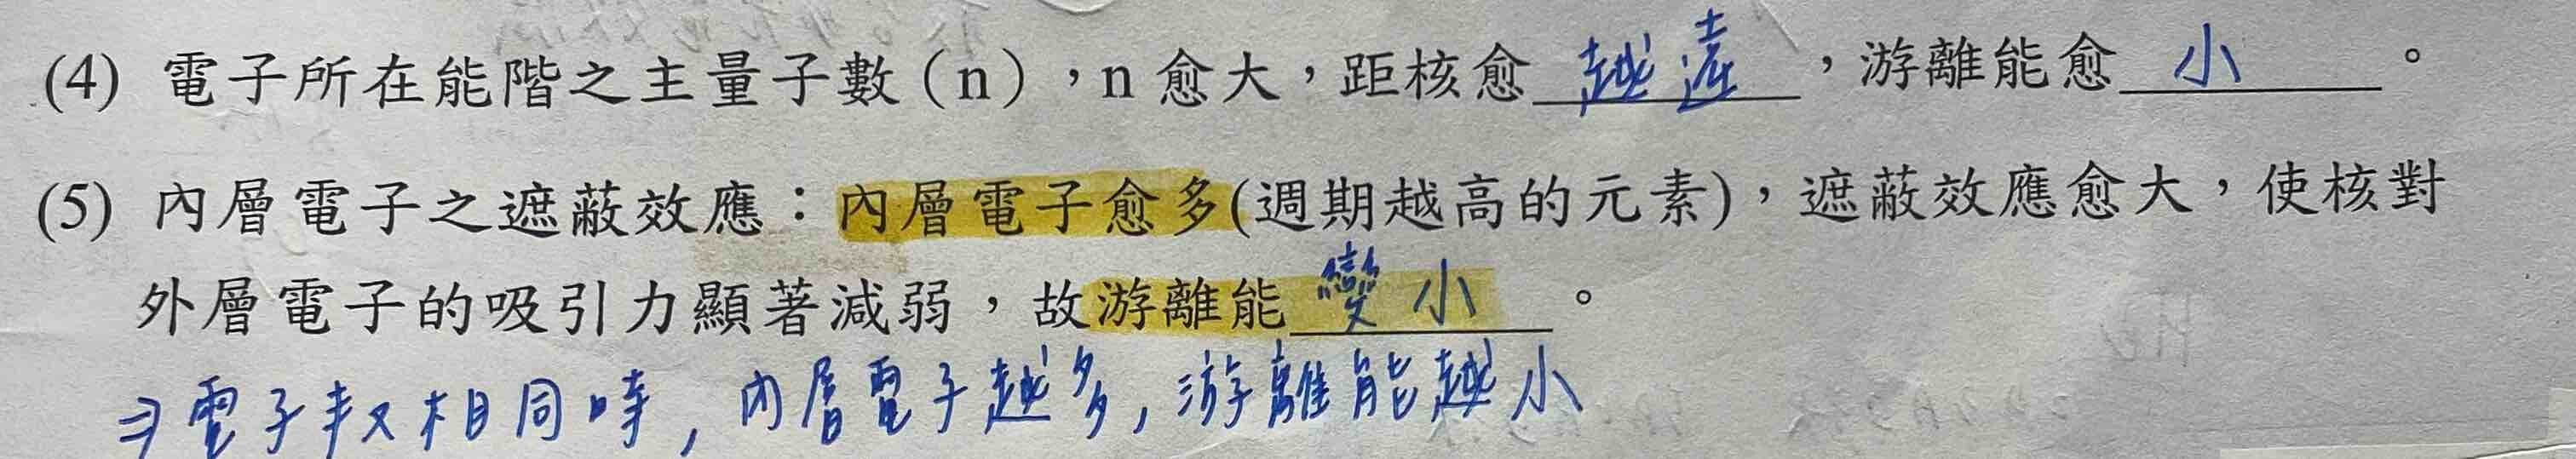 (4) 電子所在能階之主量子數（n），n 愈大，距核愈 越遠 ，游離能愈 小 。
(5) 內層電子之遮蔽效應：內層電子愈多(週期越高的元素)，遮蔽效應愈大，使核對
外層電子的吸引力顯著減弱，故游離能 變小 。
⇒電子數相同時，內層電子越多，游離能越小